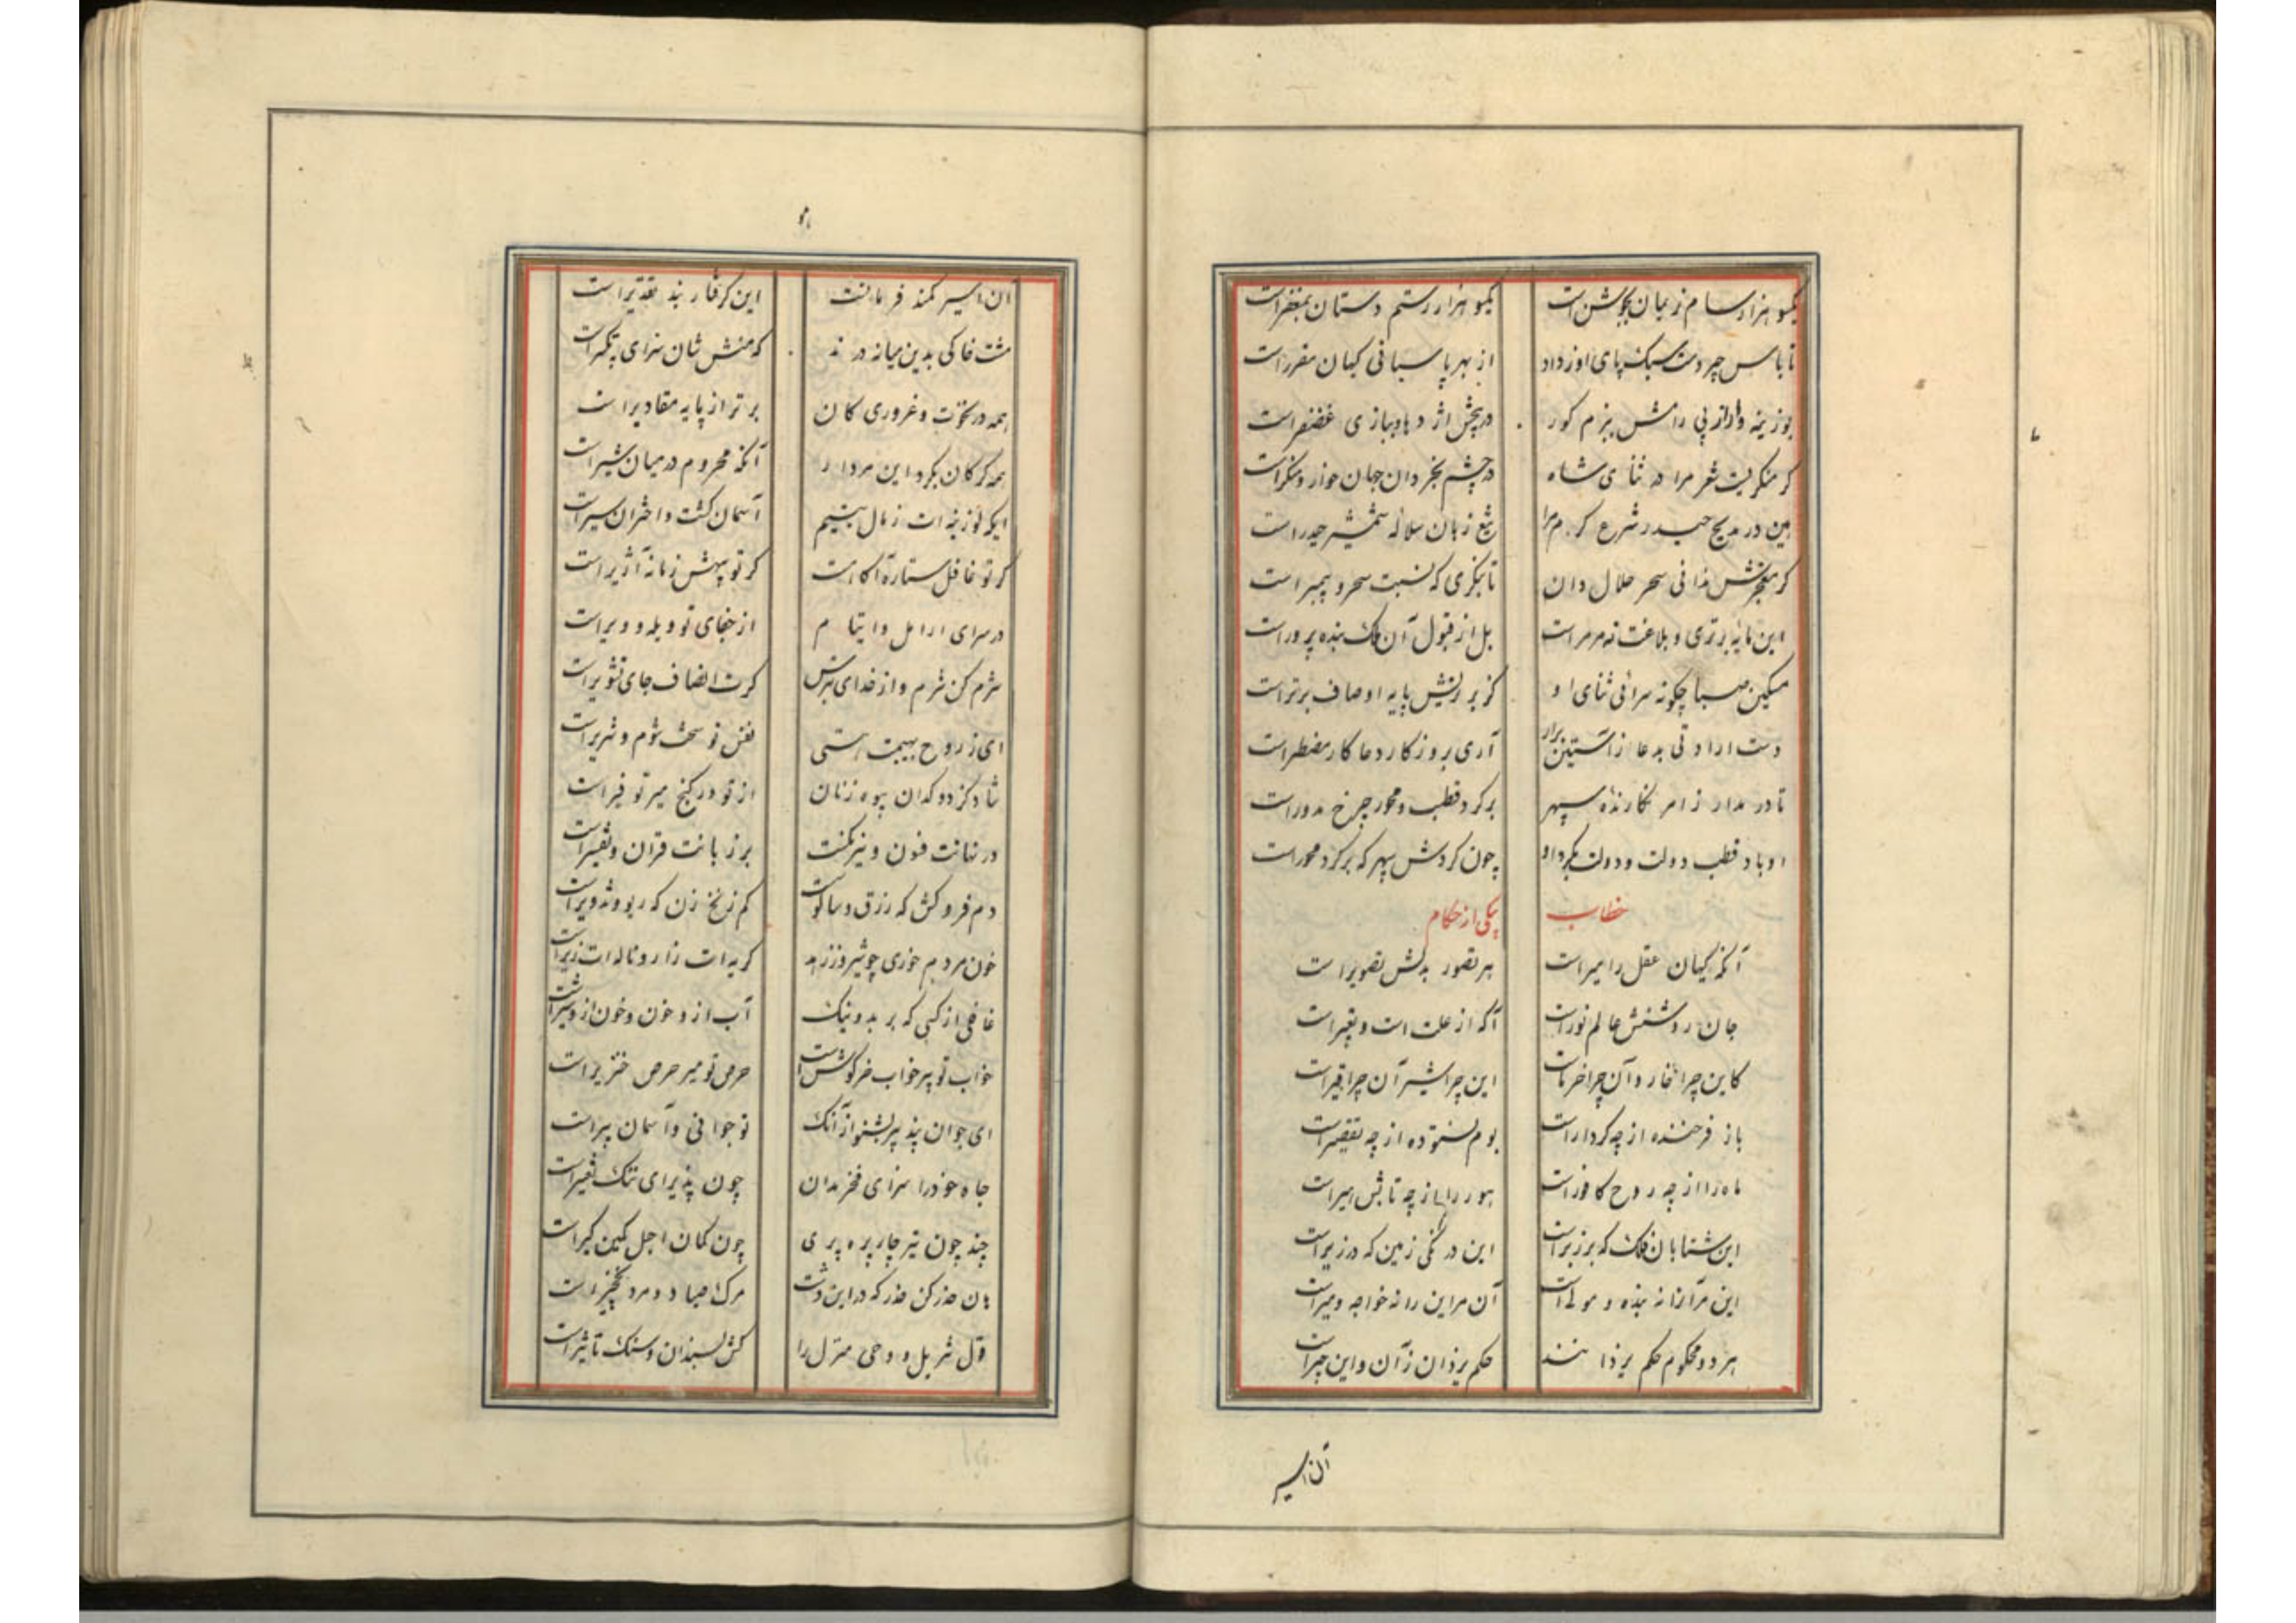 یکسو هزار سام نریمان بجوشن است
یکسو هزار رستم دستان بمغفر است
تا پاس چر دست سبک پای او ز داد
از بهر پاسبانی کیهان مقرر است
بوزینه وار از پی رامش ببزم کور
در پیش اژدها ببازی غضنفر است
کر منکریست شعر مرا در ثنای شاه
در چشم بخردان جهان خوار و منکر است
بین در مدیح حیدر شرع کرم مرا
تیغ زبان سلاله شمشیر حیدر است
کر معجزش ندانی سحر حلال دان
تا بنکری که نسبت سحر و پیمبر است
این مایه برتری و بلاغت نه مر مراست
بل از قبول آن ملک بنده پرور است
مسکین صبا چکونه سرائی ثنای او
کز برترینش پایه اوصاف برتر است
دست ارادتی بدعا ز آستین برار
آری بروزکار دعا کار مضطر است
تا در مدار ز امر نکارنده سپهر
بر کرد قطب و محور چرخ مدور است
او باد قطب دولت و دولت بکرد او
چون کردش سپهر که بر کرد محور است
خطاب
بیکی از حکام
آنکه کیهان عقل را میر است
بر تصور بدلش تصویر است
جان روشنش عالم نور است
آکه از علت است و تغییر است
کاین چرا خار و آن چرا خرماست
این چرا شیر آن چرا قیر است
باز فرخنده از چه کردار است
بوم نستوده از چه تقصیر است
ماه را از چه روح کافور است
هور را از چه تابش امیر است
این شتابان فلک که بر زبر است
این درنکی زمین که در زیر است
این مر آنرا نه بنده و مولی است
آن مر این را نه خواجه و میر است
هر دو محکوم حکم یزدانند
حکم یزدان ز آن و این چیر است
آن اسیر
آن اسیر کمند فرمانست
این کرفتار بند تقدیر است
مشت خاکی بدین میانه درند
که منش شان سزای تکبیر است
همه در نخوت و غروری کان
برتر از پایه مقادیر است
همه کرکان بکرد این مردار
آنکه محروم در میان شیر است
ایکه لوزینه ات ز مال یتیم
آسمان کشت و اختران سیر است
کر تو غافل ستاره آکاه است
کر تو بیهش زمانه آژیر است
در سرای ارامل و ایتام
از جفای تو ویله و ویر است
شرم کن شرم و از خدای بترس
کرت انصاف جای تشویر است
ای ز روح بهیمت استی
نفس تو سخت شوم و شریر است
شاد کز دوکدان بیوه زنان
از تو در کنج میر توفیر است
در نهانت فنون و نیرنکست
بر زبانت قرآن و تفسیر است
دم فروکش که رزق و سالوست
کم زنخ زن که ریو و تزویر است
خون مردم خوری چو شیر و ز زهد
کریه ات زار و ناله ات زیر است
غافلی از کسی که بر بد و نیک
آب از و خون و خون ازو شیر است
خواب تو پیر خواب خرکوش است
حرص تو میر حرص خنزیر است
ای جوان پند پیر بشنو از آنک
تو جوانی و آسمان پیر است
جاه خود را سزای فخر مدان
چون پذیرای ننک تغییر است
چند چون تیر چار پره پری
چون کمان اجل کمین کیر است
هان حذر کن حذر که در این دشت
مرک صیاد و مرد نخچیر است
قول شربل و وحی منزل را
کش بسندان و سنک تأثیر است